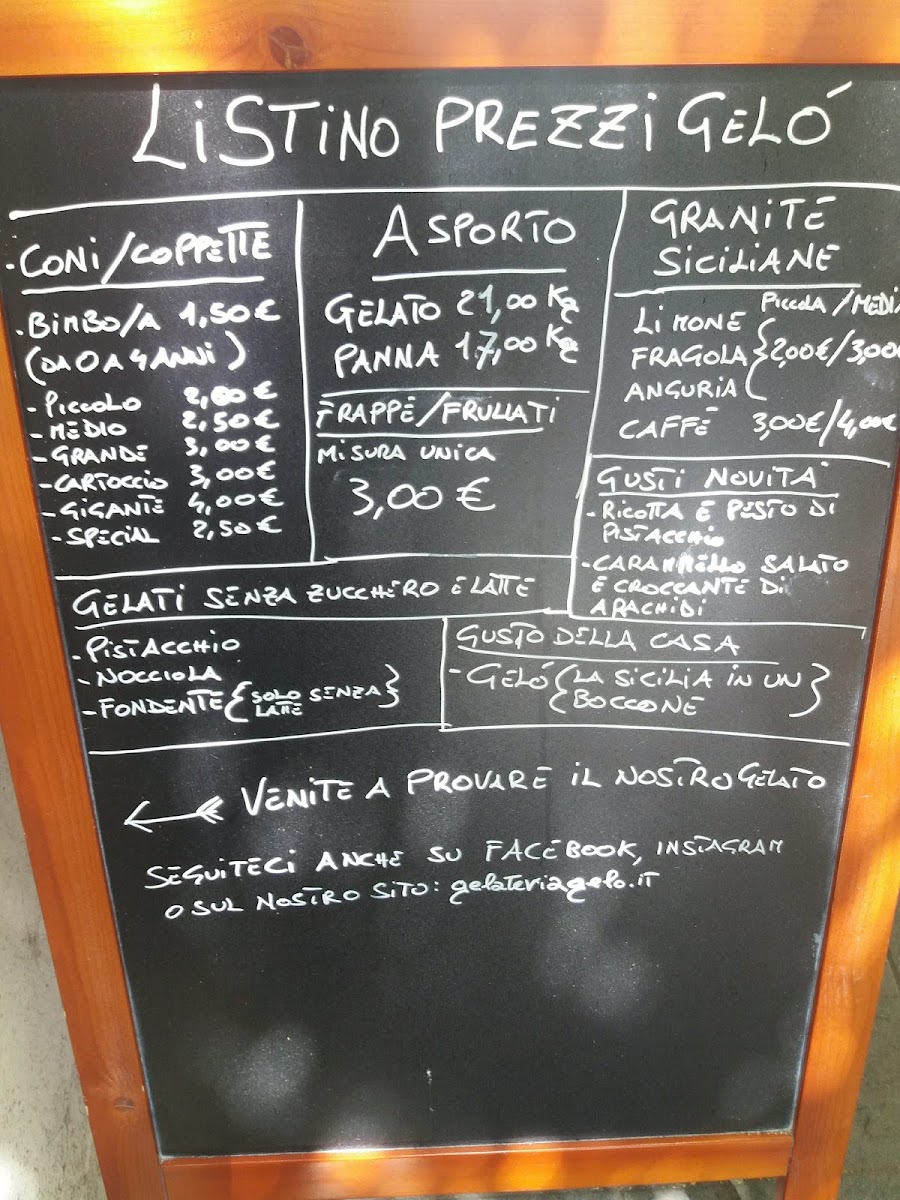 LiSTiNO PREZZi GELÓ
- CONi/COPPETTE
- BiMBO/A 1,50€
(DA 0 A 4 ANNi)
- PiCCOLO 2,00€
- MEDIO 2,50€
- GRANDE 3,00€
- CARTOCCiO 3,00€
- GIGANTE 4,00€
- SPECIAL 2,50€
ASPORTO
GELATO 21,00 Kg
PANNA 17,00 Kg
FRAPPÉ/FRULLATI
MiSURA UNiCA
3,00 €
GRANITE
SiCiLiANE
PiCCOLA/MEDI
LiMONE
FRAGOLA 2,00€/3,00
ANGURiA
CAFFÉ 3,00€/4,00€
GUSTi NOVITA'
- RiCOTTA E PESTO Di
PiSTACCHiO
- CARAMELLO SALATO
E CROCCANTE Di
ARACHiDi
GELATi SENZA ZUCCHERO E LATTE
- PiSTACCHiO
- NOCCiOLA
- FONDENTE { SOLO SENZA }
LATTE
GUSTO DELLA CASA
- GELÓ { LA SiCiLiA iN UN }
BOCCONE
VENITE A PROVARE iL NOSTRO GELATO
SEGUITECI ANCHE SU FACEBOOK, INSTAGRAM
O SUL NOSTRO SiTO: gelateriagelo.iT